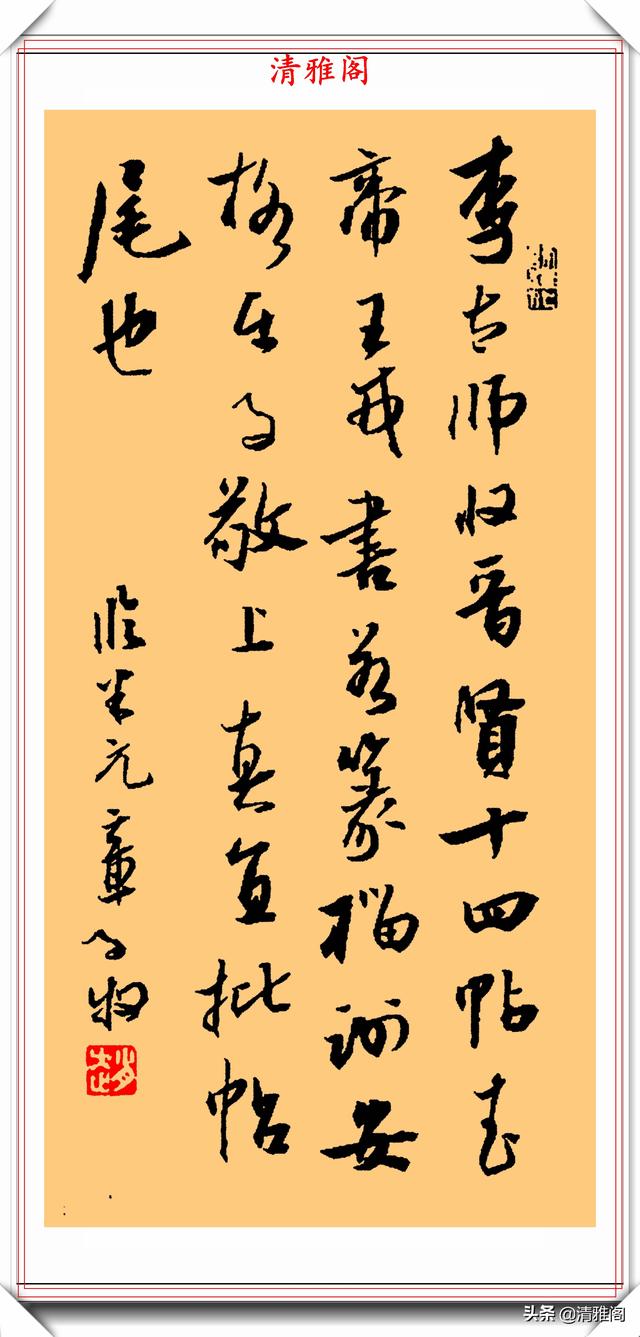 清雅阁
李太師收晉賢十四帖武
帝王戎書若篆籀謝安
格在子敬上真宜批帖
尾也
臨米元章子牧
趙
头条 @清雅阁